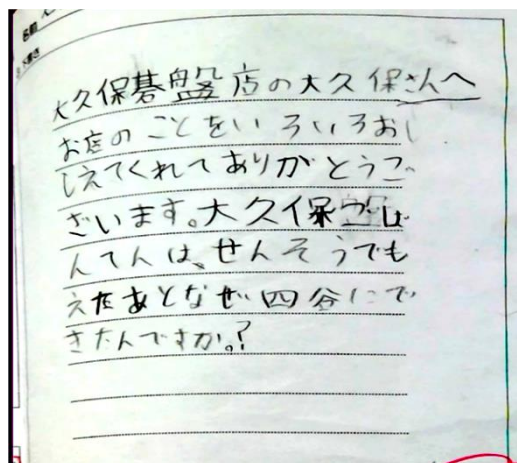 大久保碁盤店の大久保さんへ
お店のことをいろいろおし
しえてくれてありがとうご
ざいます。大久保ごば
んてんは、せんそうでも
えたあとなぜ四谷にで
きたんですか。?